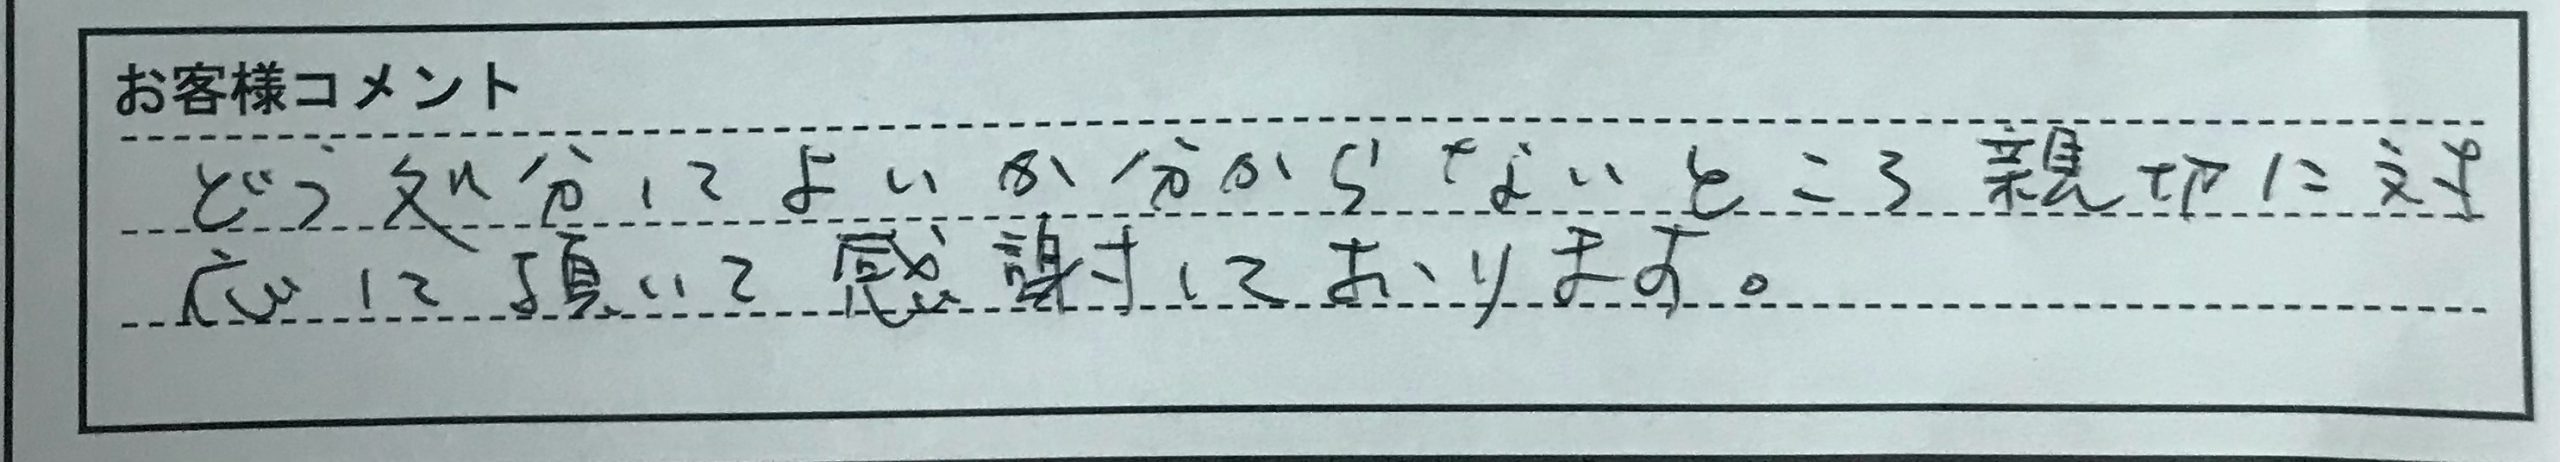 お客様コメント
どう処分してよいか分からないところ親切に対
応して頂いて感謝しております。